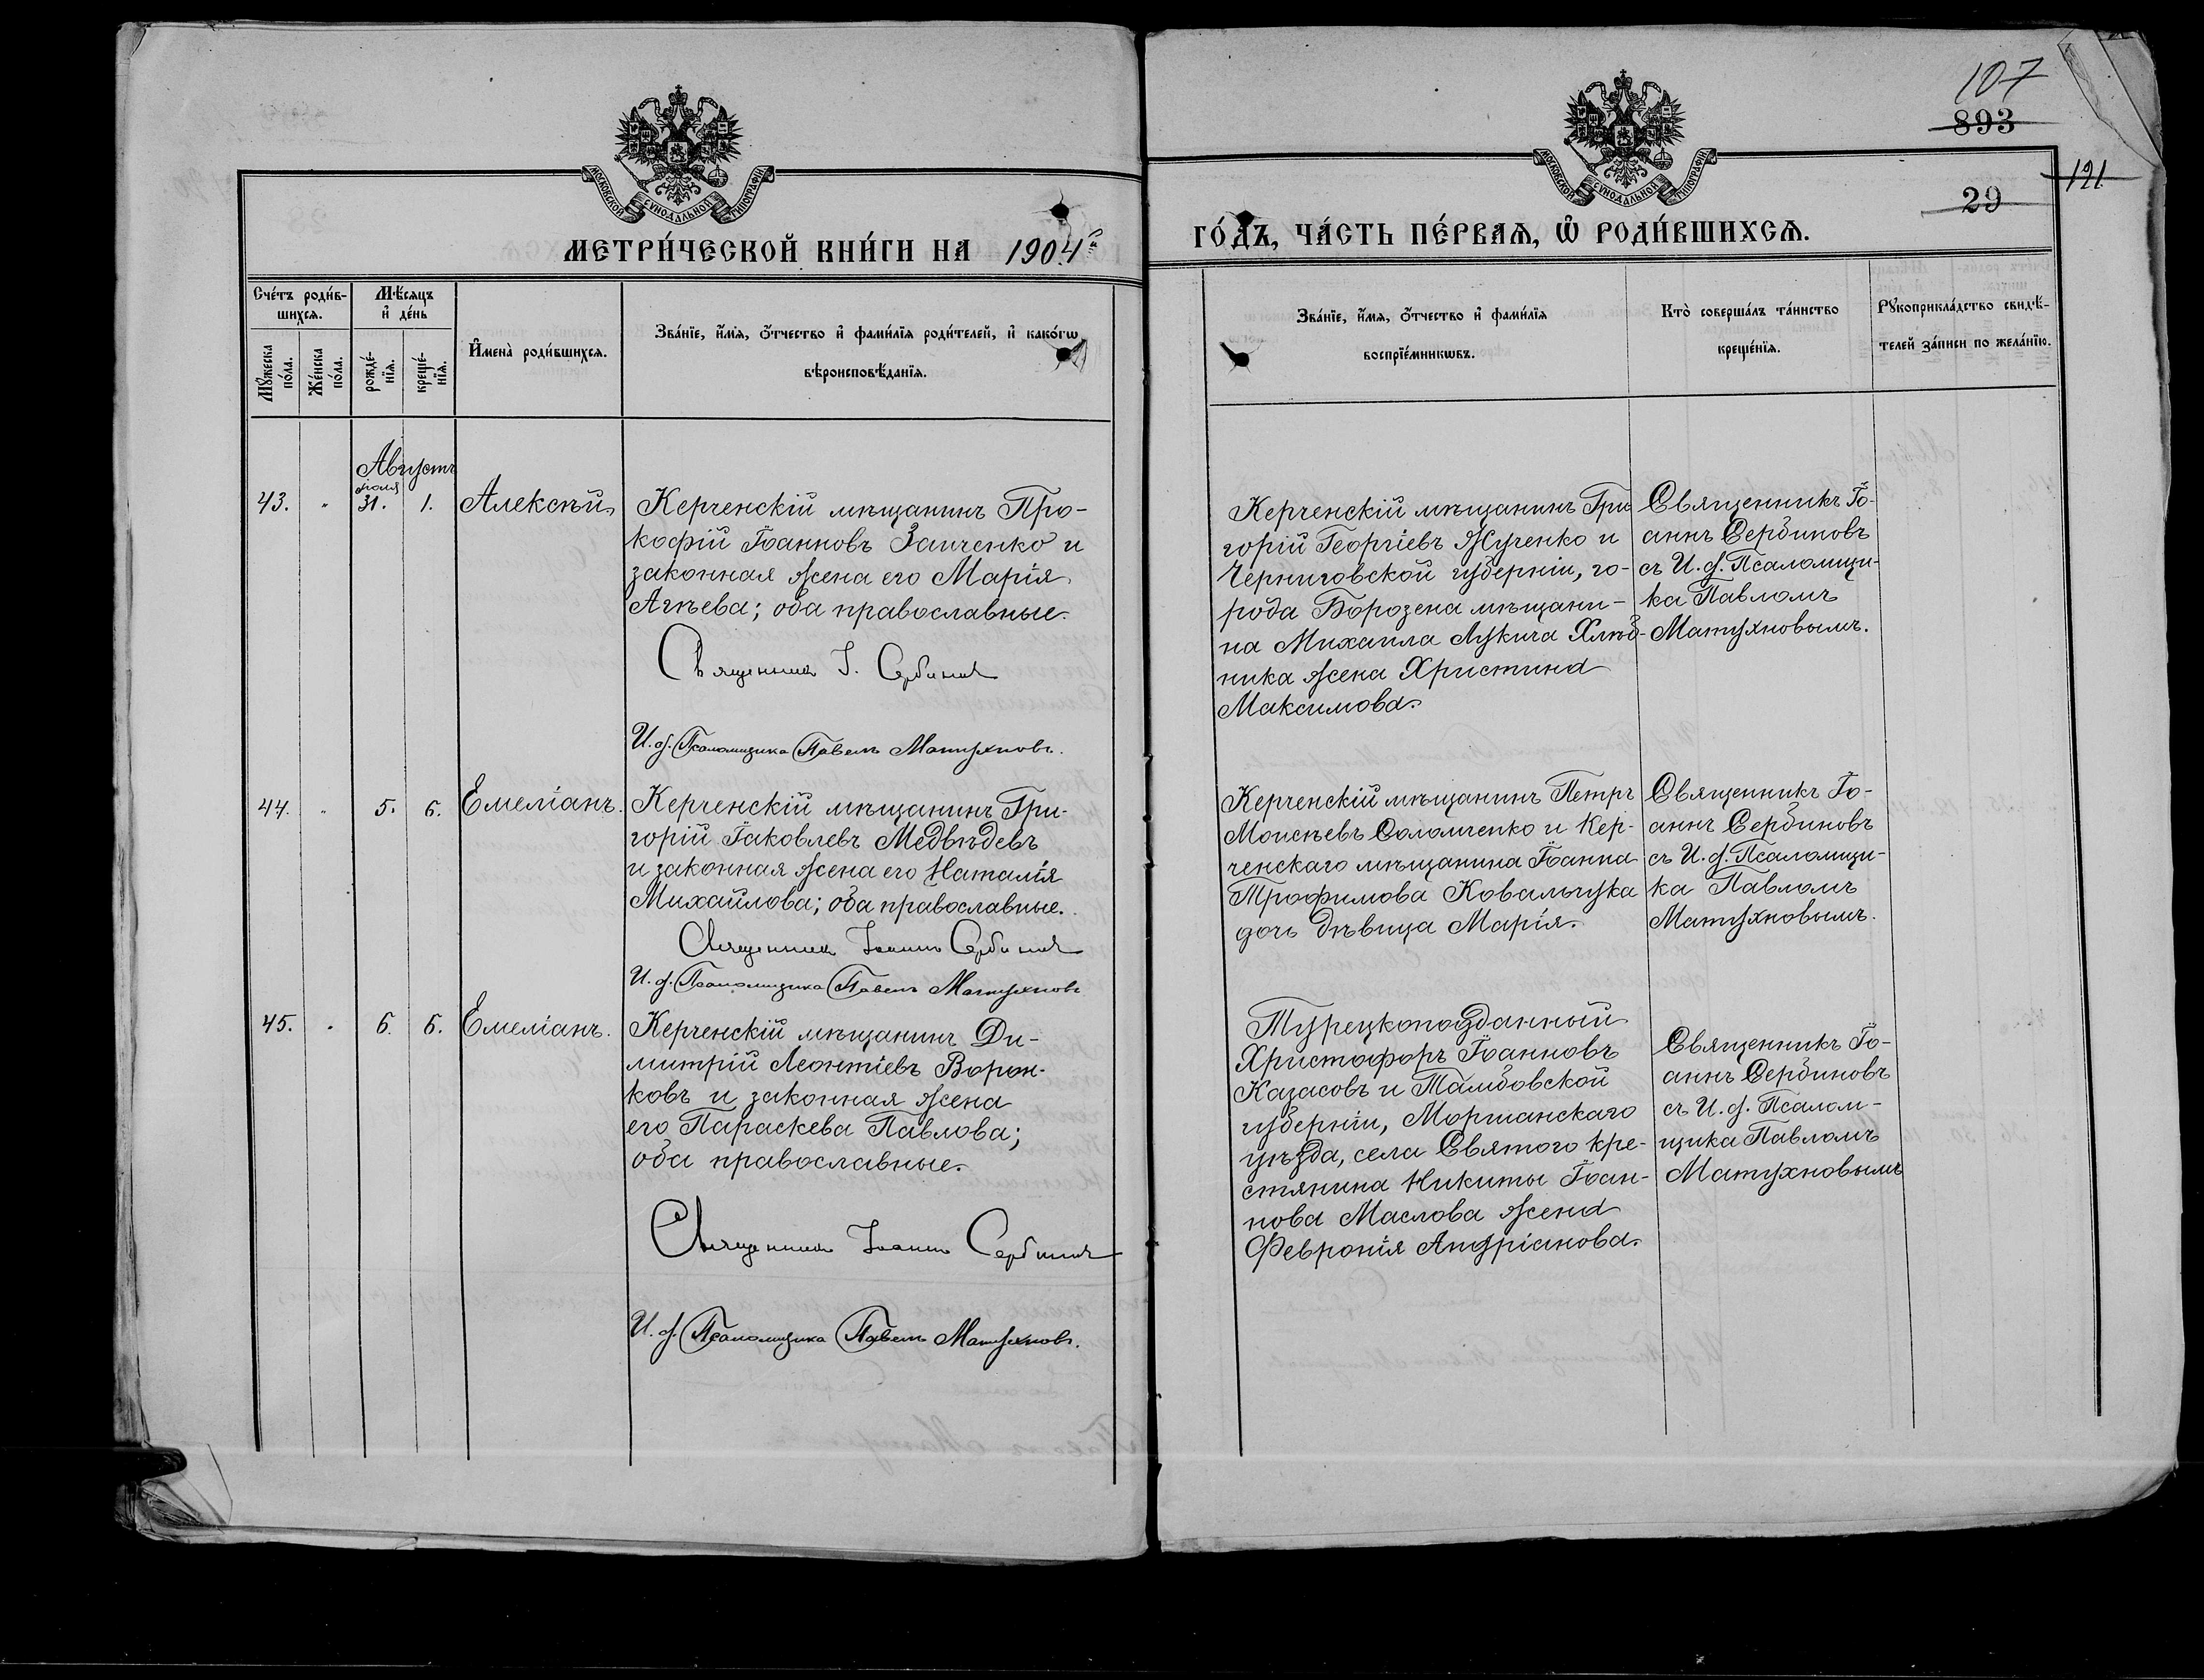 107
893
121
29
МОСКОВСКОЙ СУНОДАЛЬНОЙ ТИПОГРАФІИ
МОСКОВСКОЙ СУНОДАЛЬНОЙ ТИПОГРАФІИ
МЕТРИ́ЧЕСКОЙ КНИ́ГИ НА 1904й
ГО́ДЪ, ЧА́СТЬ ПЕ́РВАѦ, Ѡ҆ РОДИ́ВШИХСѦ.
Сче́тъ роди́в-
шихсѧ.
Мꙋ́жеска
по́ла.
Же́нска
по́ла.
Мѣ́сѧцъ
и҆ де́нь
рожде́-
нїѧ.
креще́-
нїѧ.
И҆мена̀ роди́вшихсѧ.
Зва́нїе, и҆́мѧ, ѻ҆́тчество и҆ фами́лїѧ роди́телей, и҆ како́гѡ
вѣроисповѣ́данїѧ.
Зва́нїе, и҆́мѧ, ѻ҆́тчество и҆ фами́лїѧ
воспрїе́мникѡвъ.
Кто̀ соверша́лъ та́инство
креще́нїѧ.
Рꙋкоприкла́дство свидѣ́-
телей за́писи по жела́нїю.
Августъ
іюля
43. " 31. 1. Алексѣй
Керченскій мѣщанинъ Про-
кофій Іоанновъ Заиченко и
законная жена его Марія
Агѣева; оба православные.
Священник І. Сербинов
И. д. Псаломщика Павелъ Матухновъ.
Керченскій мѣщанинъ Гри
горій Георгіевъ Жученко и
Черниговской губерніи, го-
рода Борозена мѣщани-
на Михаила Лукича Хлѣб-
ника жена Христина
Максимова.
Священникъ Іо-
аннъ Сербиновъ
съ И. д. Псаломщи-
ка Павломъ
Матухновымъ.
44. " 5. 6. Емеліанъ.
Керченскій мѣщанинъ Гри-
горій Іаковлевъ Медвѣдевъ
и законная жена его Наталія
Михайлова; оба православные.
Священник Іоанн Сербинов
И. д. Псаломщика Павелъ Матухновъ
Керченскій мѣщанинъ Петръ
Моисѣевъ Соломченко и Кер-
ченскаго мѣщанина Іоанна
Трофимова Ковальчука
дочь дѣвица Марія.
Священникъ Іо-
аннъ Сербиновъ
съ И. д. Псаломщи-
ка Павломъ
Матухновымъ.
45. " 6. 6. Емеліанъ.
Керченскій мѣщанинъ Ди-
митрій Леонтіевъ Ворон-
ковъ и законная жена
его Параскева Павлова;
оба православные.
Священник Іоанн Сербинов
И. д. Псаломщика Павелъ Матухновъ.
Турецкоподданный
Христофоръ Іоанновъ
Казасовъ и Тамбовской
губерніи, Моршанскаго
уѣзда, села Святого кре-
стянина Никиты Іоан-
нова Маслова жена
Февронія Андріанова.
Священникъ Іо-
аннъ Сербиновъ
съ И. д. Псалом-
щика Павломъ
Матухновымъ